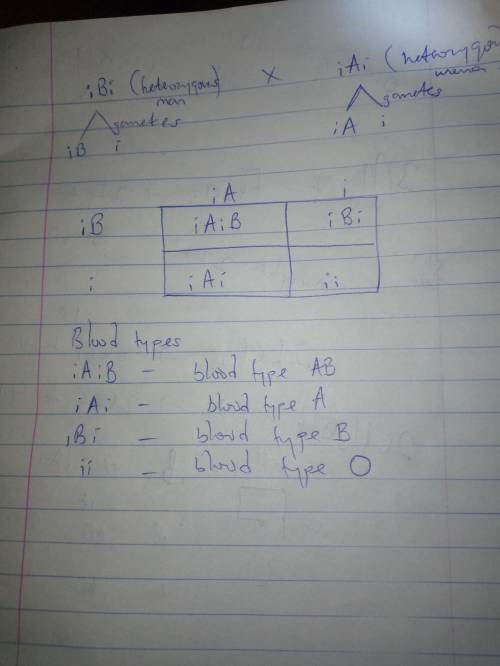 iBi (heterozygous) x iAi (heterozygou
man woman
gametes gametes
iB i iA i
iA i
iB iAiB iBi
i iAi ii
Blood types
iAiB - blood type AB
iAi - blood type A
iBi - blood type B
ii - blood type O